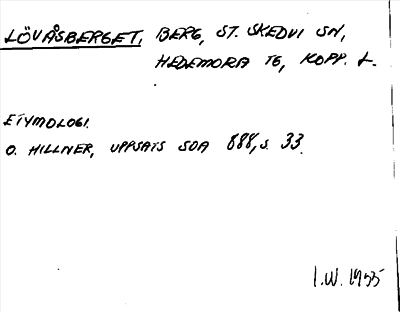 LÖVÅSBERGET, BERG, ST. SKEDVI SN,
HEDEMORA TG, KOPP. L.
ETYMOLOGI.
O. HILLNER, UPPSATS SOA 888, S. 33.
I.W. 1955